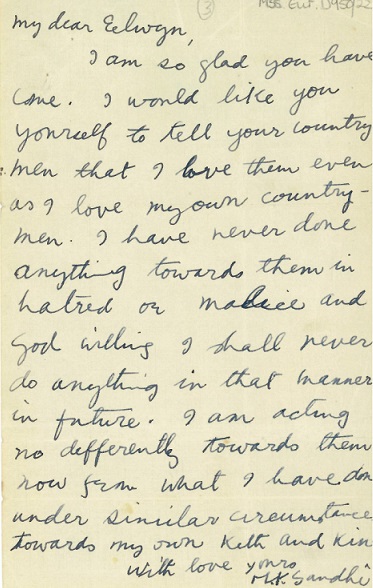 (3) MSS. Eur. D950/22
My dear Eelwyn,
I am so glad you have
come. I would like you
yourself to tell your country
men that I love them even
as I love my own country-
men. I have never done
anything towards them in
hatred or malice and
God willing I shall never
do anything in that manner
in future. I am acting
no differently towards them
now from what I have done
under similar circumstance
towards my own Kith and Kin
with love yours
M.K. Gandhi